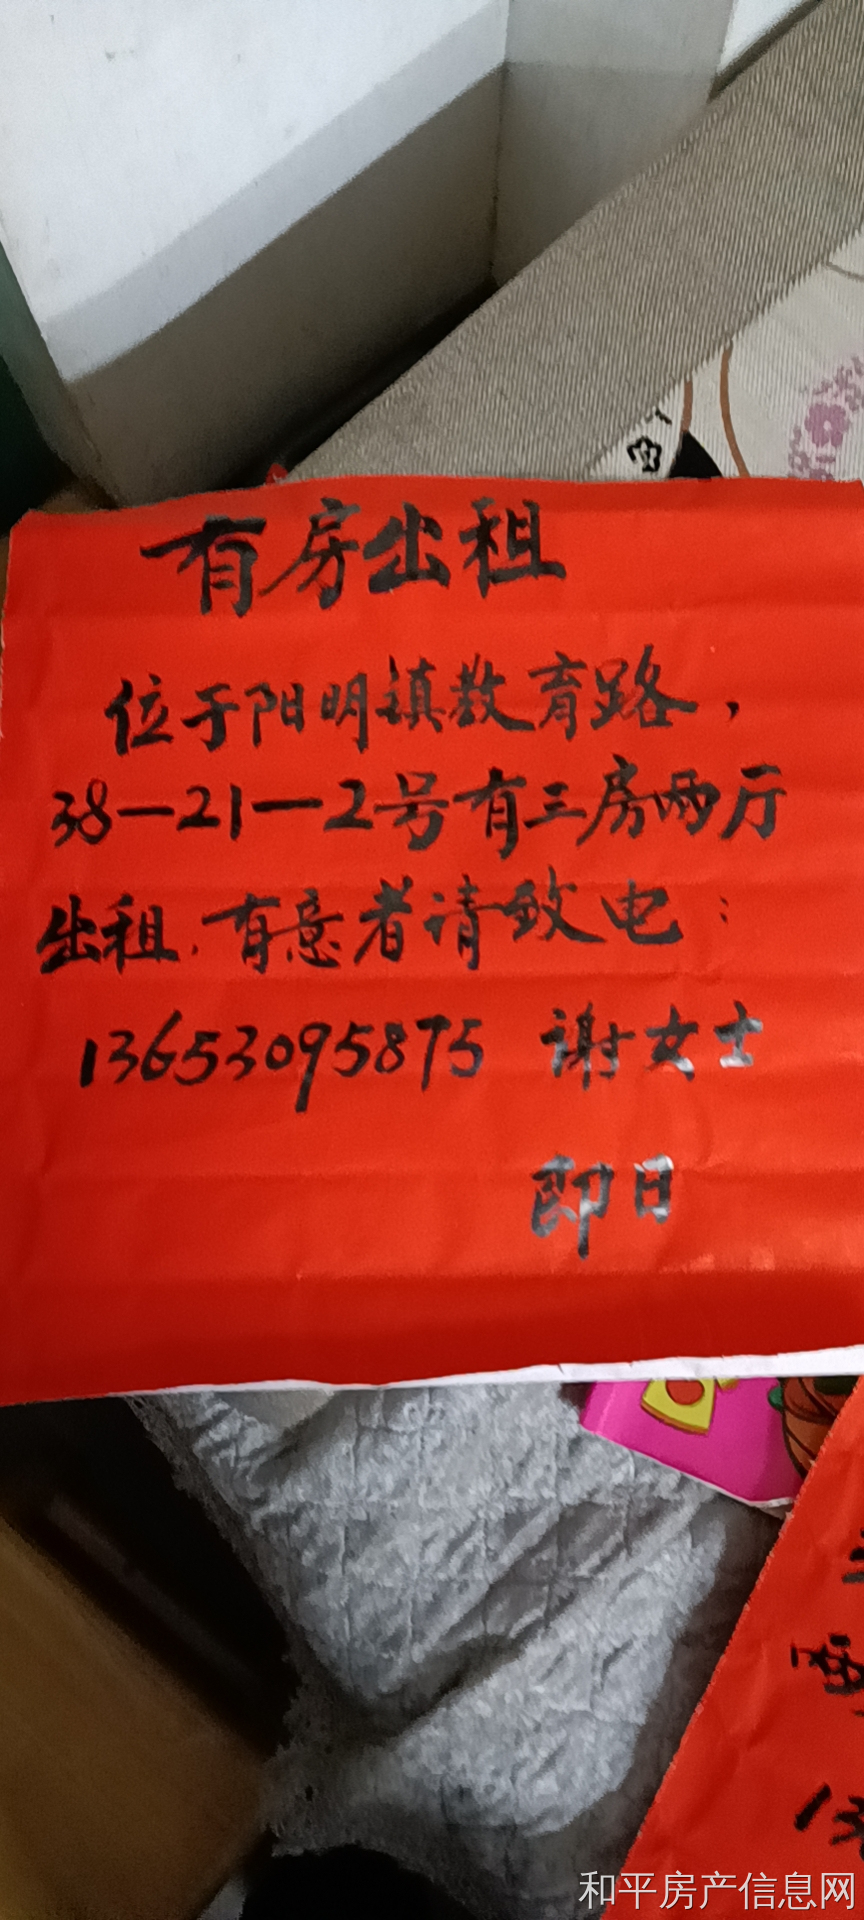 有房出租
位于阳明镇教育路，
38—21—2号有三房两厅
出租.有意者请致电：
13653095875 谢女士
即日
和平房产信息网